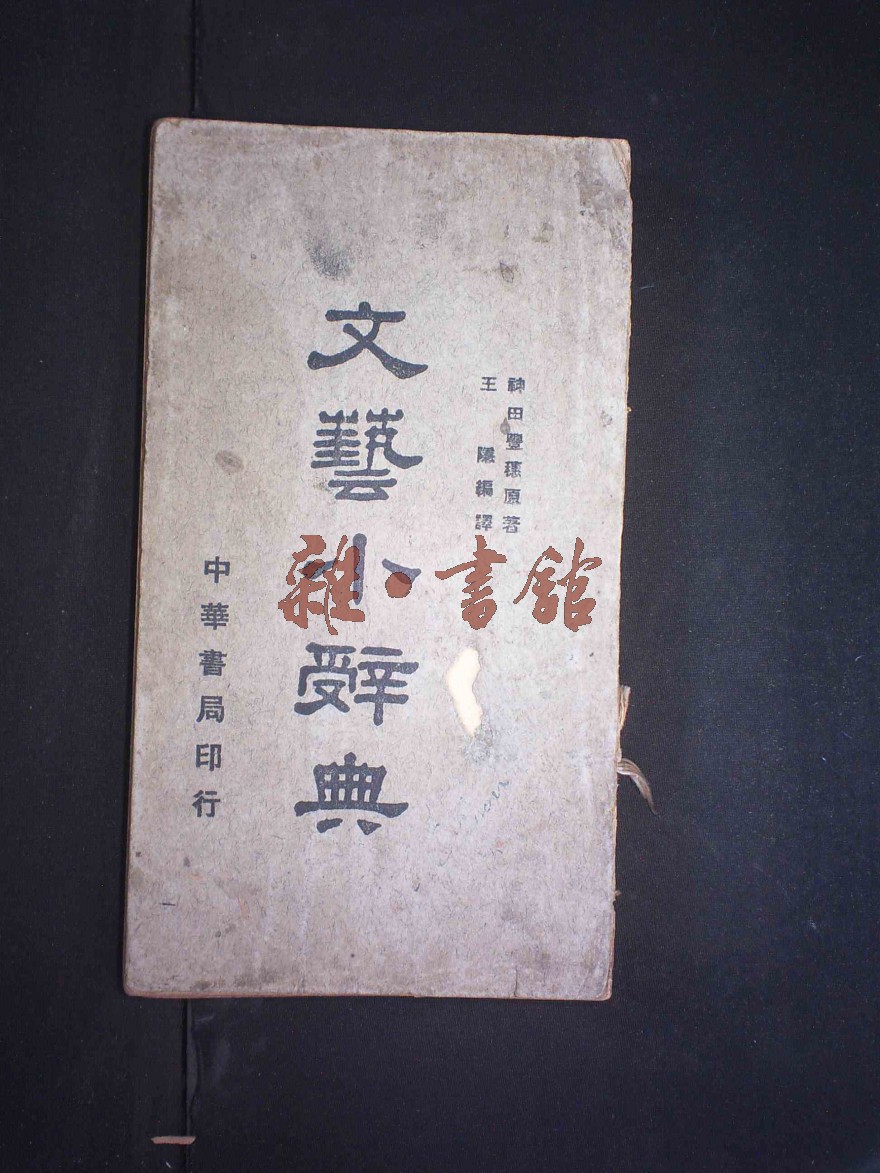 神田豐穗原著
王隱編譯
文藝小辭典
中華書局印行
雜·書館